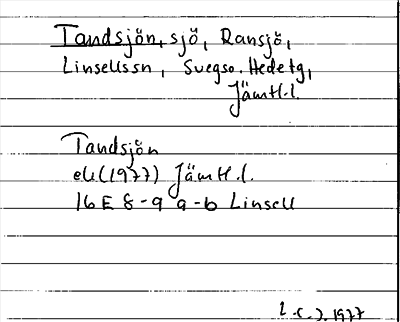 Tandsjön, sjö, Ransjö,
Linsellssn, Svegso. Hedetg,
Jämtl.l.
Tandsjön
ek (1977) Jämtl.l.
16 E 8-9 a-b Linsell
1977